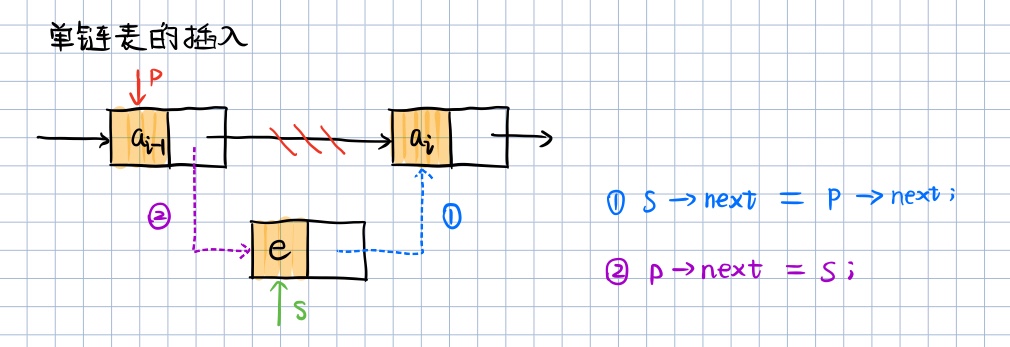 单链表的插入
P
aᵢ₋₁
aᵢ
②
①
① S → next = P → next;
e
② p → next = S;
S